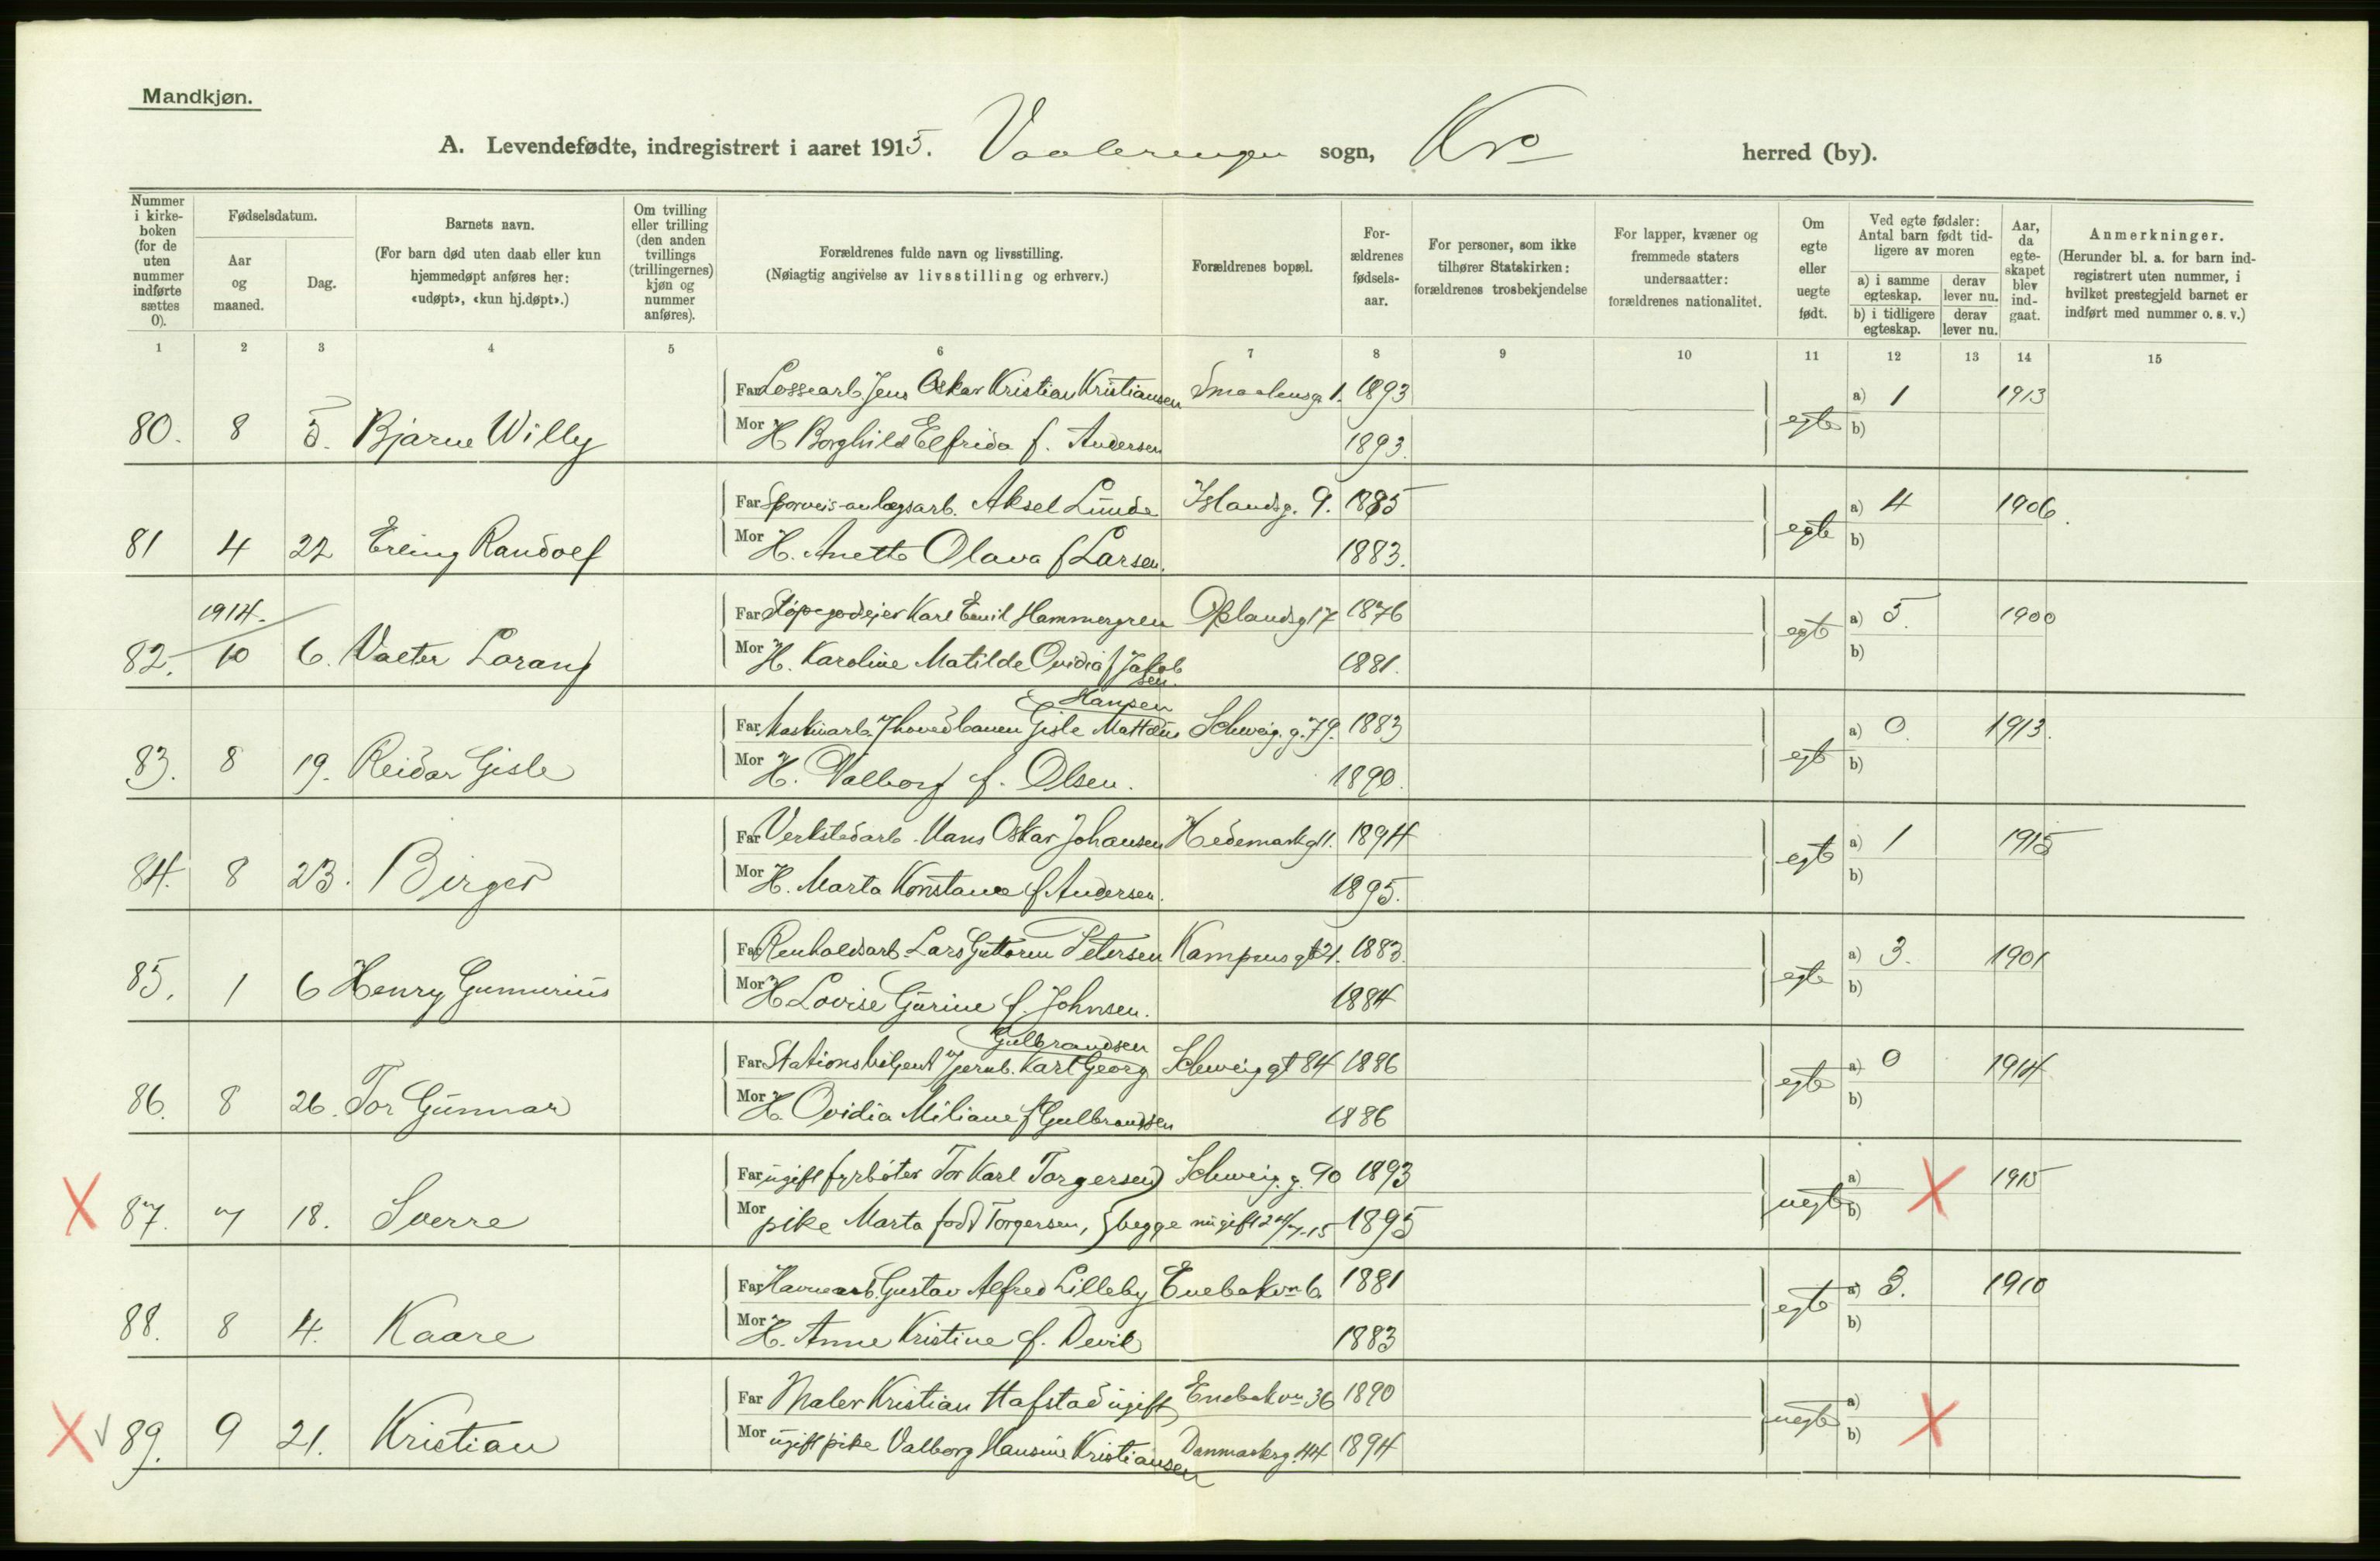 Mandkjøn.
A. Levendefødte, indregistrert i aaret 1915. Vaalerengen sogn, Kra herred (by).
Nummer i kirke-boken (for de uten nummer indførte sættes 0).
Fødselsdatum.
Aar og maaned.
Dag.
Barnets navn.
(For barn død uten daab eller kun hjemmedøpt anføres her: «udøpt», «kun hj.døpt».)
Om tvilling eller trilling (den anden tvillings (trillingernes) kjøn og nummer anføres).
Forældrenes fulde navn og livsstilling.
(Nøiagtig angivelse av livsstilling og erhverv.)
Forældrenes bopæl.
For-ældrenes fødsels-aar.
For personer, som ikke tilhører Statskirken: forældrenes trosbekjendelse
For lapper, kvæner og fremmede staters undersaatter: forældrenes nationalitet.
Om egte eller uegte født.
Ved egte fødsler: Antal barn født tid-ligere av moren
a) i samme egteskap.
derav lever nu.
b) i tidligere egteskap.
derav lever nu.
Aar, da egte-skapet blev ind-gaat.
Anmerkninger.
(Herunder bl. a. for barn ind-registrert uten nummer, i hvilket prestegjeld barnet er indført med nummer o. s. v.)
1 2 3 4 5 6 7 8 9 10 11 12 13 14 15
Far Lossearb. Jens Oskar Kristian Kristiansen Smaalensg. 1. 1893 a) 1 1913
80. 8 5. Bjarne Willy Mor H Borghild Elfrida f. Andersen 1893. egte b)
Far Sporveis-anlægsarb. Aksel Lunde Islandsg. 9. 1885 a) 4 1906.
81 4 22 Erling Randolf Mor H. Anette Olava f Larsen. 1883. egte b)
1914. Far Støpegodseier Karl Emil Hammergren Oplandsg 17 1876 a) 5. 1900
82. 10 6. Valter Lorang Mor H. Karoline Matilde Ovidia f Jakobsen. 1881. egte b)
Hansen
Far Maskinarb. v/ hovedbanen Gisle Mattæus Schweig. g. 79. 1883 a) 0. 1913.
83. 8 19. Reidar Gisle Mor H. Valborg f. Olsen. 1890. egte b)
Far Verkstedarb. Hans Oskar Johansen Hedemarkg 11. 1894 a) 1 1915
84. 8 23. Birger Mor H. Marta Konstanse f Andersen. 1895. egte b)
Far Renholdsarb. Lars Guttorm Petersen Kampens gt 21. 1883. a) 3. 1901
85. 1 6 Henry Gunnerius Mor H Lovise Gurine f. Johnsen. 1884 egte b)
Gulbrandsen
Far Stationsbetjent v/ jernb. Karl Georg Schweig gt 84 1886 a) 0 1914
86. 8 26. Tor Gunnar Mor H. Ovidia Miliane f Gulbrandsen 1886 egte b)
Far ugift fyrbøter Tor Karl Torgersen Schweig. g. 90 1893 a) 1915
87. 7 18. Sverre Mor pike Marta født Torgersen, begge nu gift 24/7-15 1895 uegte b)
Far Havnearb. Gustav Alfred Lilleby Enebakvn 6. 1881 a) 3. 1910
88. 8 4. Kaare Mor H. Anne Kristine f. Devik 1883 egte b)
Far Maler Kristian Hafstad ugift Enebakvn 36 1890 a)
89. 9 21. Kristian Mor ugift pike Valborg Hansine Kristiansen Danmarksg. 44 1894 uegte b)